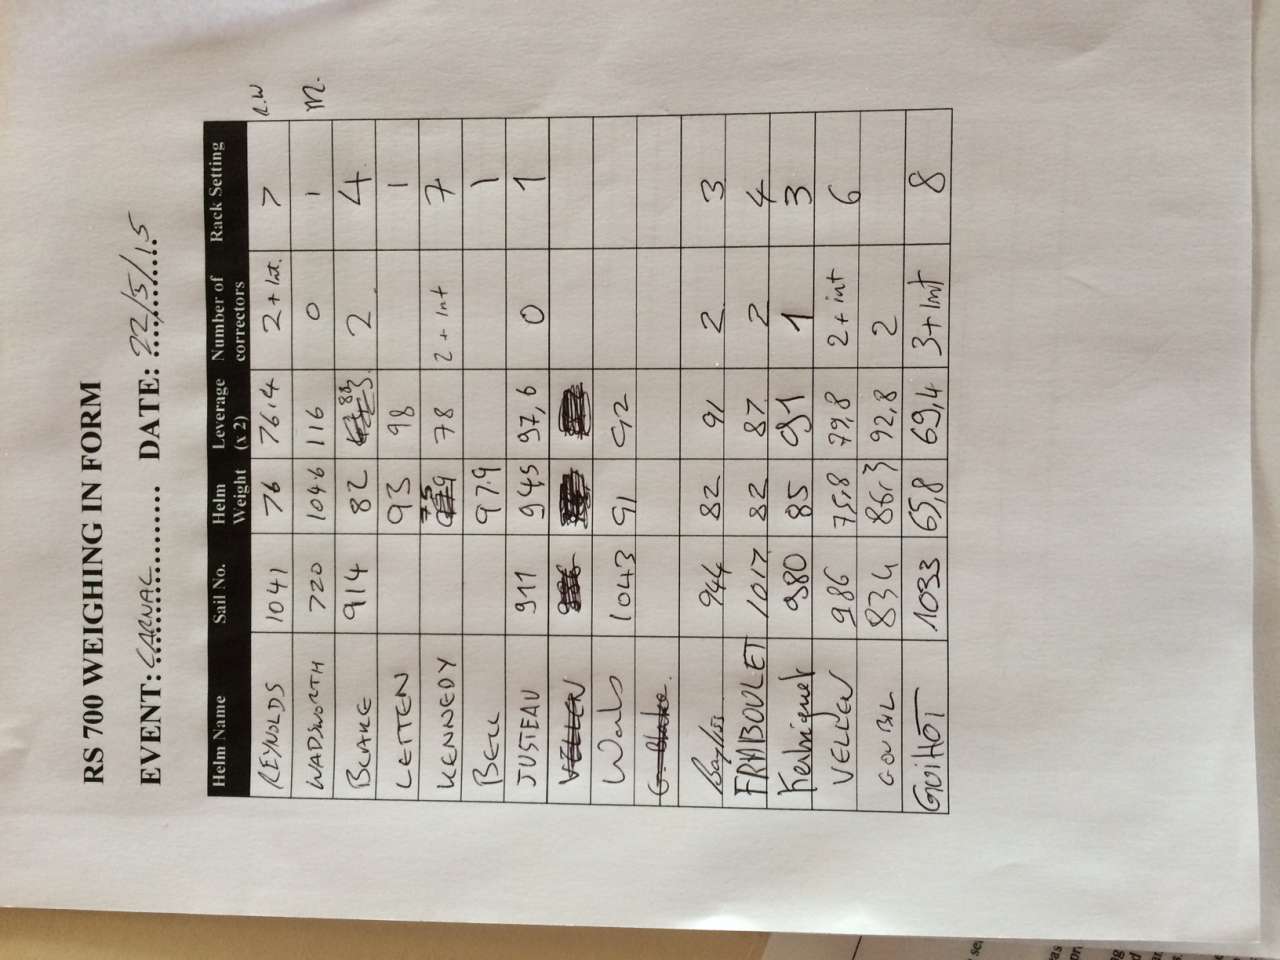 RS 700 WEIGHING IN FORM
EVENT: CARNAC DATE: 22/5/15
Helm Name Sail No. Helm Weight Leverage (x 2) Number of correctors Rack Setting
REYNOLDS 1041 76 76.4 2 + Int. 7 R.W
WADSWORTH 720 104.6 116 0 1 M.
BLAKE 914 82 88 2 4
LETTEN 93 98 1
KENNEDY 75 78 2 + Int 7
BELL 97.9 1
JUSTEAU 911 945 97,6 0 1
VELLEN
Wals 1043 91 92
G. Blake
Baylis 944 82 91 2 3
FRABOULET 1017 82 87 2 4
Kerbriquet 980 85 91 1 3
VELLEN 986 75,8 79,8 2 + int 6
GOUBIL 834 86,3 92,8 2
GUIHOT 1033 65,8 69,4 3 + Int 8